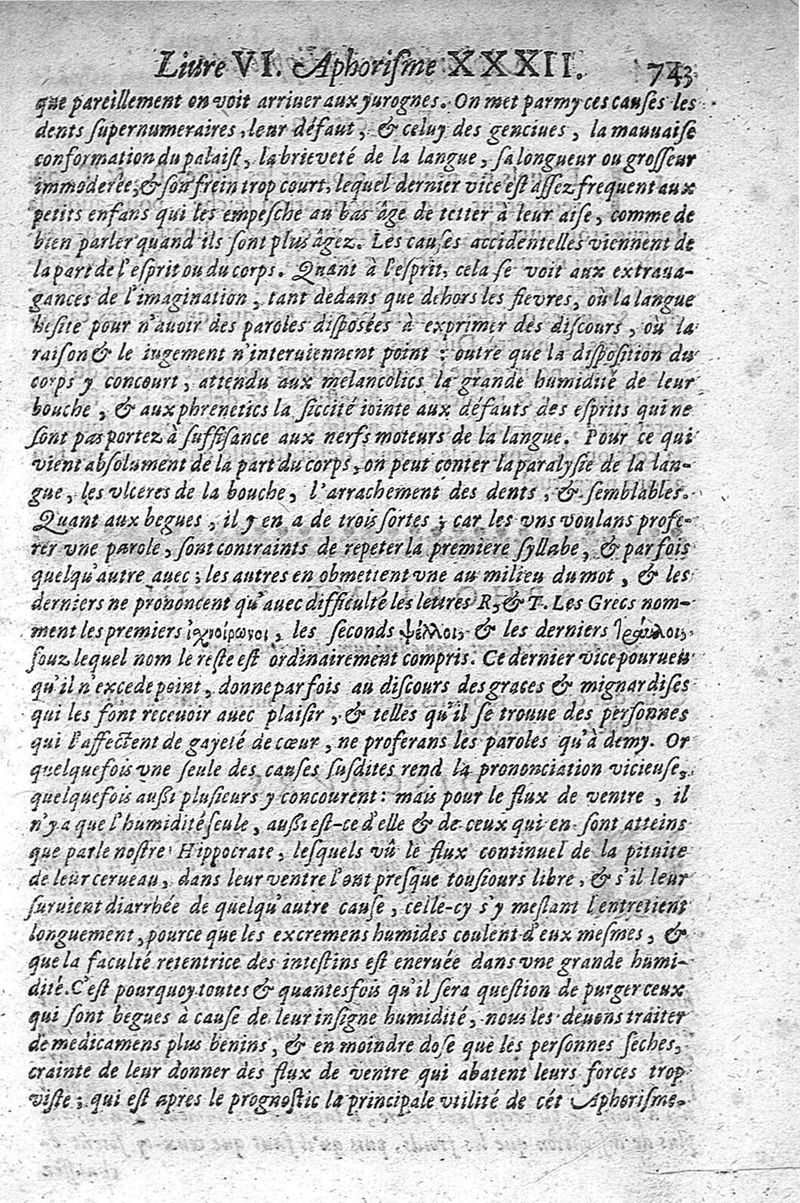 Liure VI. Aphorisme XXXII. 743
que pareillement on voit arriuer aux yurognes. On met parmy ces causes les
dents supernumeraires, leur défaut, & celuy des genciues, la mauuaise
conformation du palaist, la brieveté de la langue, sa longueur ou grosseur
immoderée, & son frein trop court, lequel dernier vice est assez frequent aux
petits enfans qui les empesche au bas âge de tetter à leur aise, comme de
bien parler quand ils sont plus âgez. Les causes accidentelles viennent de
la part de l'esprit ou du corps. Quant à l'esprit, cela se voit aux extraua-
gances de l'imagination, tant dedans que dehors les fievres, où la langue
hesite pour n'auoir des paroles disposées à exprimer des discours, où la
raison & le iugement n'interuiennent point : outre que la disposition du
corps y concourt, attendu aux melancolics la grande humidité de leur
bouche, & aux phrenetics la siccité iointe aux défauts des esprits qui ne
sont pas portez à suffisance aux nerfs moteurs de la langue. Pour ce qui
vient absolument de la part du corps, on peut conter la paralysie de la lan-
gue, les vlceres de la bouche, l'arrachement des dents, & semblables.
Quant aux begues, il y en a de trois sortes ; car les vns voulans profe-
rer vne parole, sont contraints de repeter la premiere syllabe, & par fois
quelqu'autre auec ; les autres en obmettent vne au milieu du mot, & les
derniers ne prononcent qu'auec difficulté les lettres R, & T. Les Grecs nom-
ment les premiers les seconds ψελλοι, & les derniers
souz lequel nom le reste est ordinairement compris. Ce dernier vice pourueu
qu'il n'excede point, donne par fois au discours des graces & mignardises
qui les font receuoir auec plaisir, & telles qu'il se trouue des personnes
qui l'affectent de gayeté de cœur, ne proferans les paroles qu'à demy. Or
quelquefois vne seule des causes susdites rend la prononciation vicieuse,
quelquefois aussi plusieurs y concourent : mais pour le flux de ventre, il
n'y a que l'humidité seule, aussi est-ce d'elle & de ceux qui en sont atteins
que parle nostre Hippocrate, lesquels vû le flux continuel de la pituite
de leur cerueau, dans leur ventre l'ont presque tousiours libre, & s'il leur
suruient diarrhée de quelqu'autre cause, celle-cy s'y meslant l'entretient
longuement, pource que les excremens humides coulent d'eux mesmes, &
que la faculté retentrice des intestins est eneruée dans vne grande humi-
dité. C'est pourquoy toutes & quantesfois qu'il sera question de purger ceux
qui sont begues à cause de leur insigne humidité, nous les deuons traiter
de medicamens plus benins, & en moindre dose que les personnes seches,
crainte de leur donner des flux de ventre qui abatent leurs forces trop
viste ; qui est apres le prognostic la principale vtilité de cét Aphorisme.